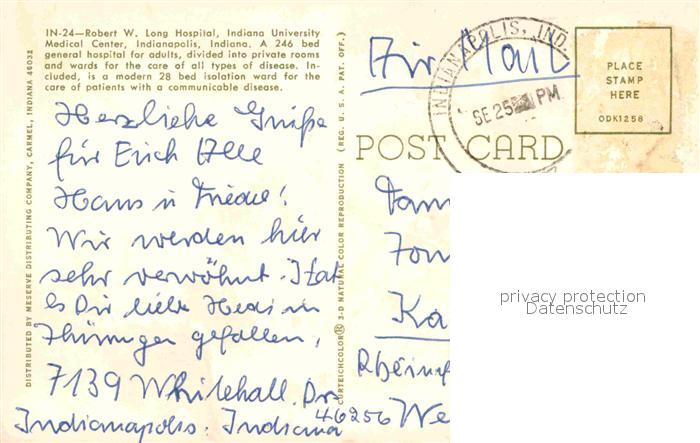 IN-24—Robert W. Long Hospital, Indiana University
Medical Center, Indianapolis, Indiana. A 246 bed
general hospital for adults, divided into private rooms
and wards for the care of all types of disease. In-
cluded, is a modern 28 bed isolation ward for the
care of patients with a communicable disease.
DISTRIBUTED BY MESERVE DISTRIBUTING COMPANY, CARMEL, INDIANA 46032
Herzliche Grüße
für Euch Alle
Hans u Friedel!
Wir werden hier
sehr verwöhnt. Hat
es Dir liebe Hedi in
Thüringen gefallen,
7139 Whitehall Dr
Indianapolis. Indiana 46256
CURTEICHCOLOR® 3-D NATURAL COLOR REPRODUCTION (REG. U.S.A. PAT. OFF.)
Air Mail
INDIANAPOLIS, IND.
SE 25 PM
PLACE
STAMP
HERE
ODK1258
POST CARD
Fam
Ka
We
privacy protection
Datenschutz